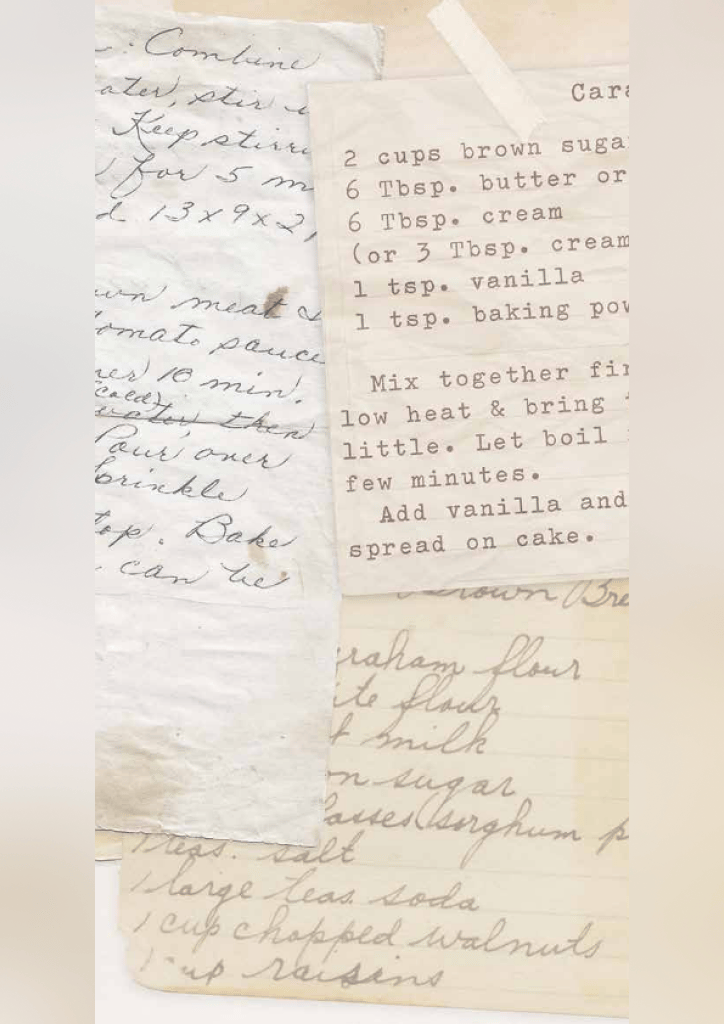 : Combine
ater, stir
Keep stirr
for 5 m
d 13x9x2,
wn meat &
tomato sauce
er 10 min.
(cold)
water, then
Pour over
prinkle
top. Bake
can be
Cara
2 cups brown suga
6 Tbsp. butter or
6 Tbsp. cream
(or 3 Tbsp. cream
1 tsp. vanilla
1 tsp. baking pow
Mix together fir
low heat & bring
little. Let boil
few minutes.
Add vanilla and
spread on cake.
Brown Bre
raham flour
ite flour
t milk
on sugar
lasses (sorghum p
1 teas. salt
1 large teas. soda
1 cup chopped walnuts
1 cup raisins